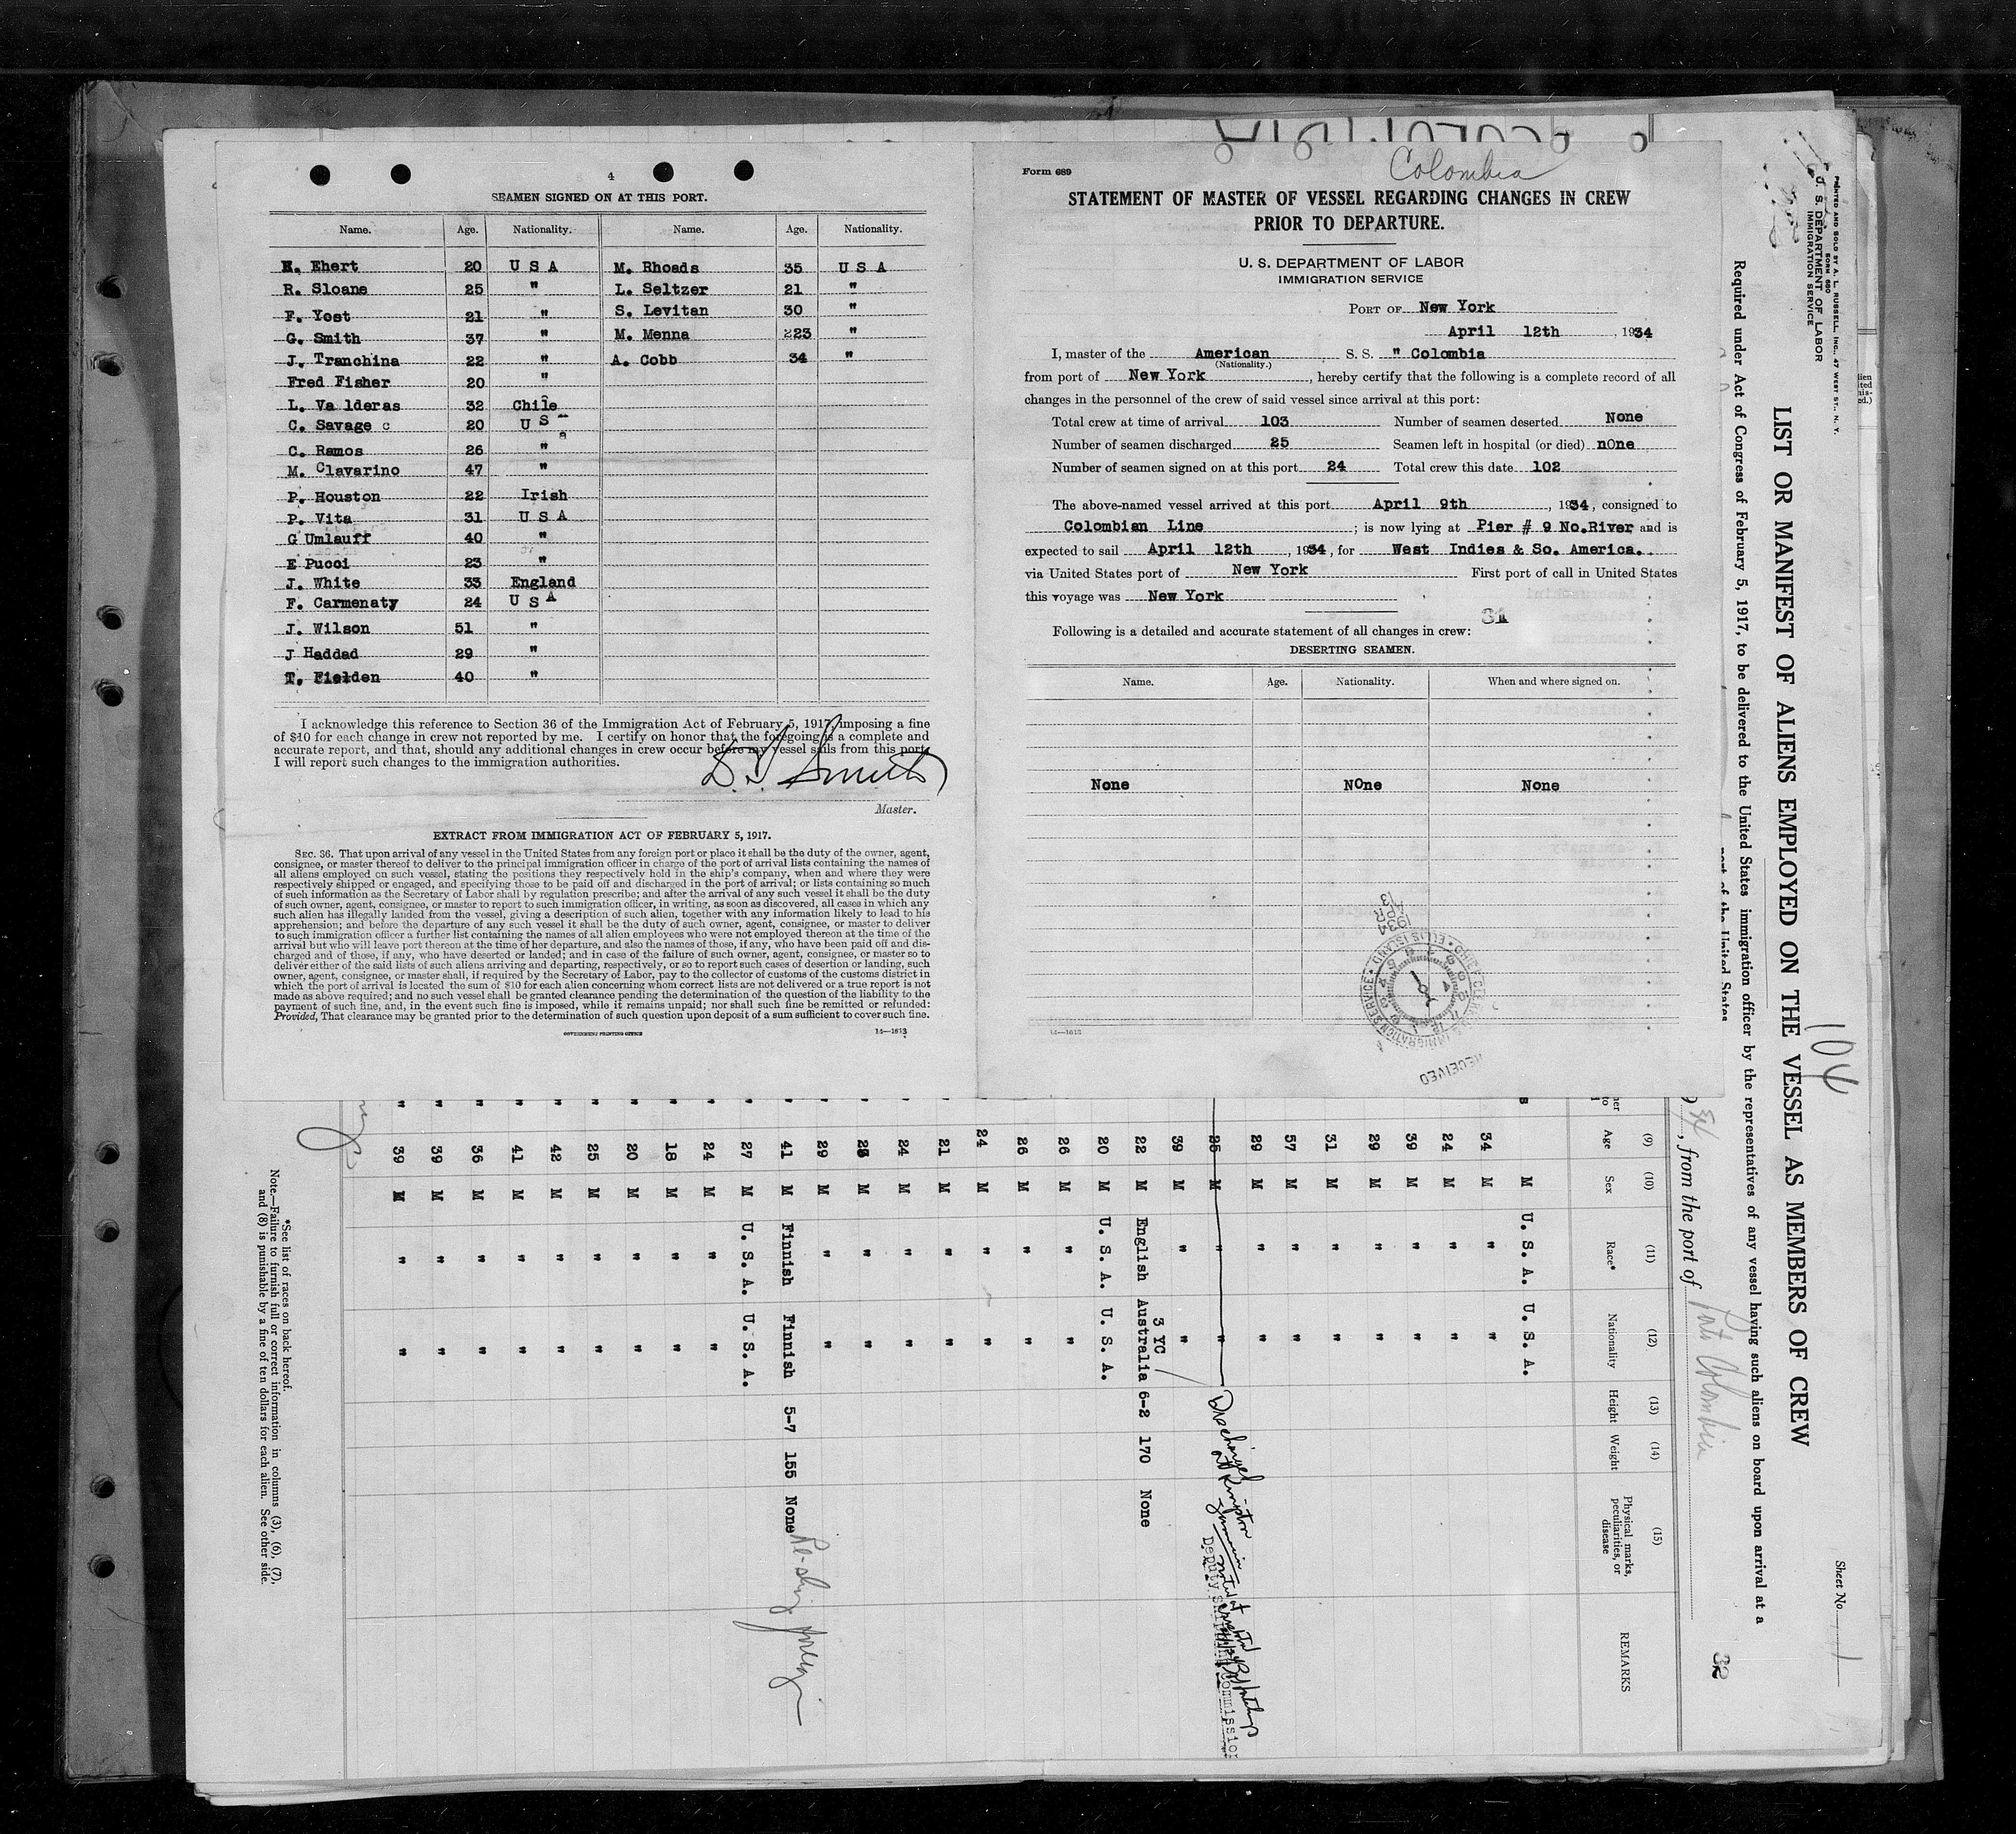 4
SEAMEN SIGNED ON AT THIS PORT.
Name. Age. Nationality. Name. Age. Nationality.
E. Ehert 20 U S A M. Rhoads 35 U S A
R. Sloane 25 " L. Seltzer 21 "
F. Yost 21 " S. Levitan 30 "
G. Smith 37 " M. Menna 223 "
J. Tranchina 22 " A. Cobb 34 "
Fred Fisher 20 "
L. Va lderas 32 Chile
C. Savage c 20 U S
C. Ramos 26 "
M. Clavarino 47 "
P. Houston 22 Irish
P. Vita 31 U S A
G Umlauff 40 "
E Pucci 23 "
J. White 33 England
F. Carmenaty 24 U S A
J. Wilson 51 "
J Haddad 29 "
T. Fielden 40 "
I acknowledge this reference to Section 36 of the Immigration Act of February 5, 1917, imposing a fine
of $10 for each change in crew not reported by me. I certify on honor that the foregoing is a complete and
accurate report, and that, should any additional changes in crew occur before my vessel sails from this port
I will report such changes to the immigration authorities.
Smith
Master.
EXTRACT FROM IMMIGRATION ACT OF FEBRUARY 5, 1917.
SEC. 36. That upon arrival of any vessel in the United States from any foreign port or place it shall be the duty of the owner, agent,
consignee, or master thereof to deliver to the principal immigration officer in charge of the port of arrival lists containing the names of
all aliens employed on such vessel, stating the positions they respectively hold in the ship's company, when and where they were
respectively shipped or engaged, and specifying those to be paid off and discharged in the port of arrival; or lists containing so much
of such information as the Secretary of Labor shall by regulation prescribe; and after the arrival of any such vessel it shall be the duty
of such owner, agent, consignee, or master to report to such immigration officer, in writing, as soon as discovered, all cases in which any
such alien has illegally landed from the vessel, giving a description of such alien, together with any information likely to lead to his
apprehension; and before the departure of any such vessel it shall be the duty of such owner, agent, consignee, or master to deliver
to such immigration officer a further list containing the names of all alien employees who were not employed thereon at the time of the
arrival but who will leave port thereon at the time of her departure, and also the names of those, if any, who have been paid off and dis-
charged and of those, if any, who have deserted or landed; and in case of the failure of such owner, agent, consignee, or master so to
deliver either of the said lists of such aliens arriving and departing, respectively, or so to report such cases of desertion or landing, such
owner, agent, consignee, or master shall, if required by the Secretary of Labor, pay to the collector of customs of the customs district in
which the port of arrival is located the sum of $10 for each alien concerning whom correct lists are not delivered or a true report is not
made as above required; and no such vessel shall be granted clearance pending the determination of the question of the liability to the
payment of such fine, and, in the event such fine is imposed, while it remains unpaid; nor shall such fine be remitted or refunded:
Provided, That clearance may be granted prior to the determination of such question upon deposit of a sum sufficient to cover such fine.
GOVERNMENT PRINTING OFFICE 14—1613
Form 689
Colombia
STATEMENT OF MASTER OF VESSEL REGARDING CHANGES IN CREW
PRIOR TO DEPARTURE.
U. S. DEPARTMENT OF LABOR
IMMIGRATION SERVICE
PORT OF New York
April 12th , 1934
I, master of the American S. S. " Colombia
(Nationality.)
from port of New York , hereby certify that the following is a complete record of all
changes in the personnel of the crew of said vessel since arrival at this port:
Total crew at time of arrival 103 Number of seamen deserted None
Number of seamen discharged 25 Seamen left in hospital (or died) nOne
Number of seamen signed on at this port 24 Total crew this date 102
The above-named vessel arrived at this port April 9th , 1934, consigned to
Colombian Line ; is now lying at Pier # 9 No.River and is
expected to sail April 12th , 1934, for West Indies & So. America.
via United States port of New York First port of call in United States
this voyage was New York
31
Following is a detailed and accurate statement of all changes in crew:
DESERTING SEAMEN.
Name. Age. Nationality. When and where signed on.
None NOne None
14—1613
1934 APR 13
IMMIGRATION SERVICE • ELLIS ISLAND • CHIEF CLERK
RECEIVED
PRINTED AND SOLD BY A. L. RUSSELL, INC., 47 WEST ST., N. Y.
FORM 680
U. S. DEPARTMENT OF LABOR
IMMIGRATION SERVICE
Sheet No. 1
LIST OR MANIFEST OF ALIENS EMPLOYED ON THE VESSEL AS MEMBERS OF CREW
104
Required under Act of Congress of February 5, 1917, to be delivered to the United States immigration officer by the representatives of any vessel having such aliens on board upon arrival at a
port of the United States
34, from the port of Porto Colombia
32
(9) (10) (11) (12) (13) (14) (15)
Age Sex Race* Nationality Height Weight Physical marks, peculiarities, or disease REMARKS
M U. S. A. U. S. A.
34 M " "
24 M " "
39 M " "
29 M " "
31 M " "
57 M " "
29 M " "
25 M " " Discharged at Kingston Jamaica
Deputy Commission
39 M " "
3 YC
22 M English Australia 6-2 170 None
20 M U. S. A. U. S. A.
26 M " "
26 M " "
24 M " "
21 M " "
24 M " "
25 M " "
29 M " "
41 M Finnish Finnish 5-7 155 None Re-ship foreign
27 M U. S. A. U. S. A.
24 M " "
18 M " "
20 M " "
25 M " "
42 M " "
41 M " "
36 M " "
39 M " "
39 M " "
*See list of races on back hereof.
Note.—Failure to furnish full or correct information in columns (3), (6), (7),
and (8) is punishable by a fine of ten dollars for each alien. See other side.